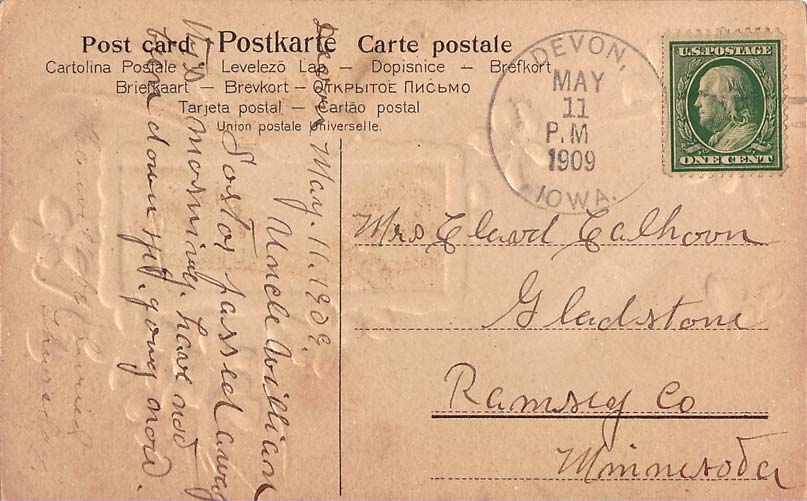 Post card - Postkarte Carte postale
Cartolina Postale - Levelező Lap - Dopisnice - Brefkort
Briefkaart - Brevkort - Открытое Письмо
Tarjeta postal - Cartão postal
Union postale Universelle.
DEVON,
MAY
11
P.M
1909
IOWA.
U.S. POSTAGE
ONE CENT
Mrs Calhoun
Gladstone
Ramsey Co
Minnesota
Devon May. 11. 1909.
Uncle William
passed away
this morning. have not
been down yet. going now.
buried
thursday.